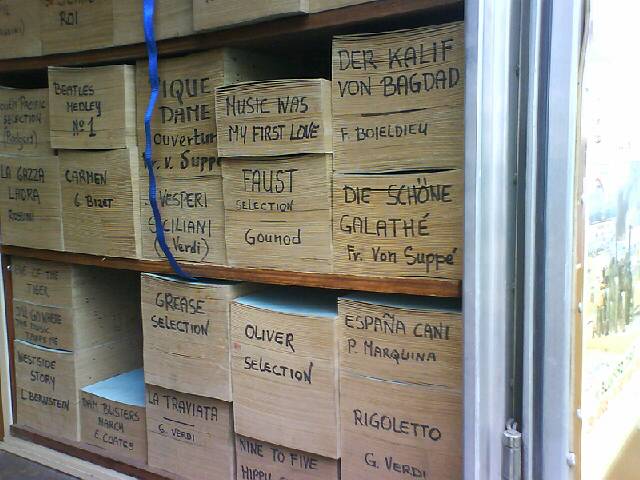 ROI
SOUTH PACIFIC
SELECTION
(Rodgers)
BEATLES
MEDLEY
Nº 1
PIQUE
DAME
ouverture
Fr. v. Suppé
MUSIC WAS
MY FIRST LOVE
DER KALIF
VON BAGDAD
F. BOIELDIEU
LA GAZZA
LADRA
ROSSINI
CARMEN
G. BIZET
VESPERI
SICILIANI
(Verdi)
FAUST
SELECTION
Gounod
DIE SCHÖNE
GALATHÉ
Fr. Von Suppé
EYE OF THE
TIGER
I'LL GO WHERE
THE MUSIC
TAKES ME
WESTSIDE
STORY
L. BERNSTEIN
DAM BUSTERS
MARCH
E. COATES
GREASE
SELECTION
LA TRAVIATA
G. VERDI
OLIVER
SELECTION
NINE TO FIVE
ESPAÑA CANI
P. MARQUINA
RIGOLETTO
G. VERDI